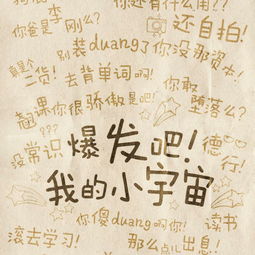 你还有什么用??
你爸是李刚么?
还自拍!
别装duang了你没那资本!
真是个二货!
去背单词啊!
你敢堕落么?
翘课你很骄傲是吧!
???
没常识
爆发吧!
德行!
我的小宇宙
你傻duang啊你!
读书
滚去学习!
那么点儿出息!